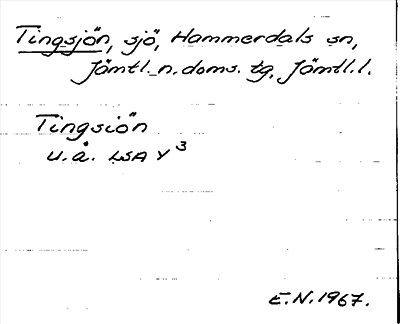 Tingsjön, sjö, Hammerdals sn,
Jämtl. n. doms. tg, Jämtl. l.
Tingsiön
u.å. LSA Y³
E.N. 1967.